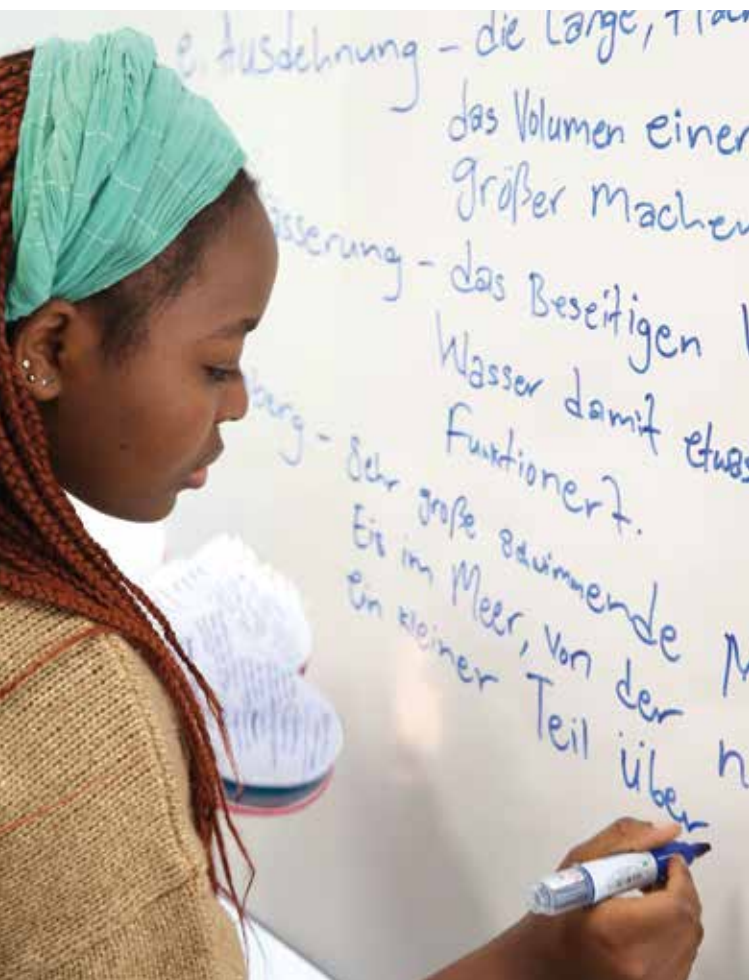 e. Ausdehnung – die Länge, Fläch
das Volumen einer
größer machen
ässerung – das Beseitigen
Wasser damit etwas
funktionert.
berg – Sehr große schwimmende M
Eis im Meer, von der n
ein kleiner Teil über